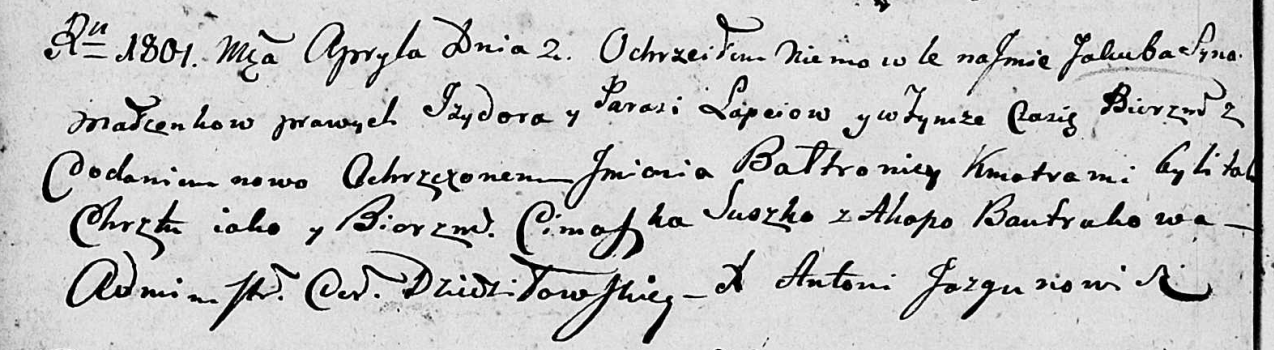 Ru 1801. Mca Apryla Dnia 2. Ochrzciłem Niemowle na Jmie Jakuba Syna
Małżenkow prawych Jzydora y Parasi Łapciow y w tymże Czasie Bierzm̃ z
dodaniem nowo Ochrzczonemu Jmienia Bałtromiey Kmotrami byli tak
Chrztu iako y Bierzm̃. Cimaszka Suszko z Ahapo Bautrukowa —
Administr. Cer. Dziedziłowskiey — X Antoni Jazgunowicz